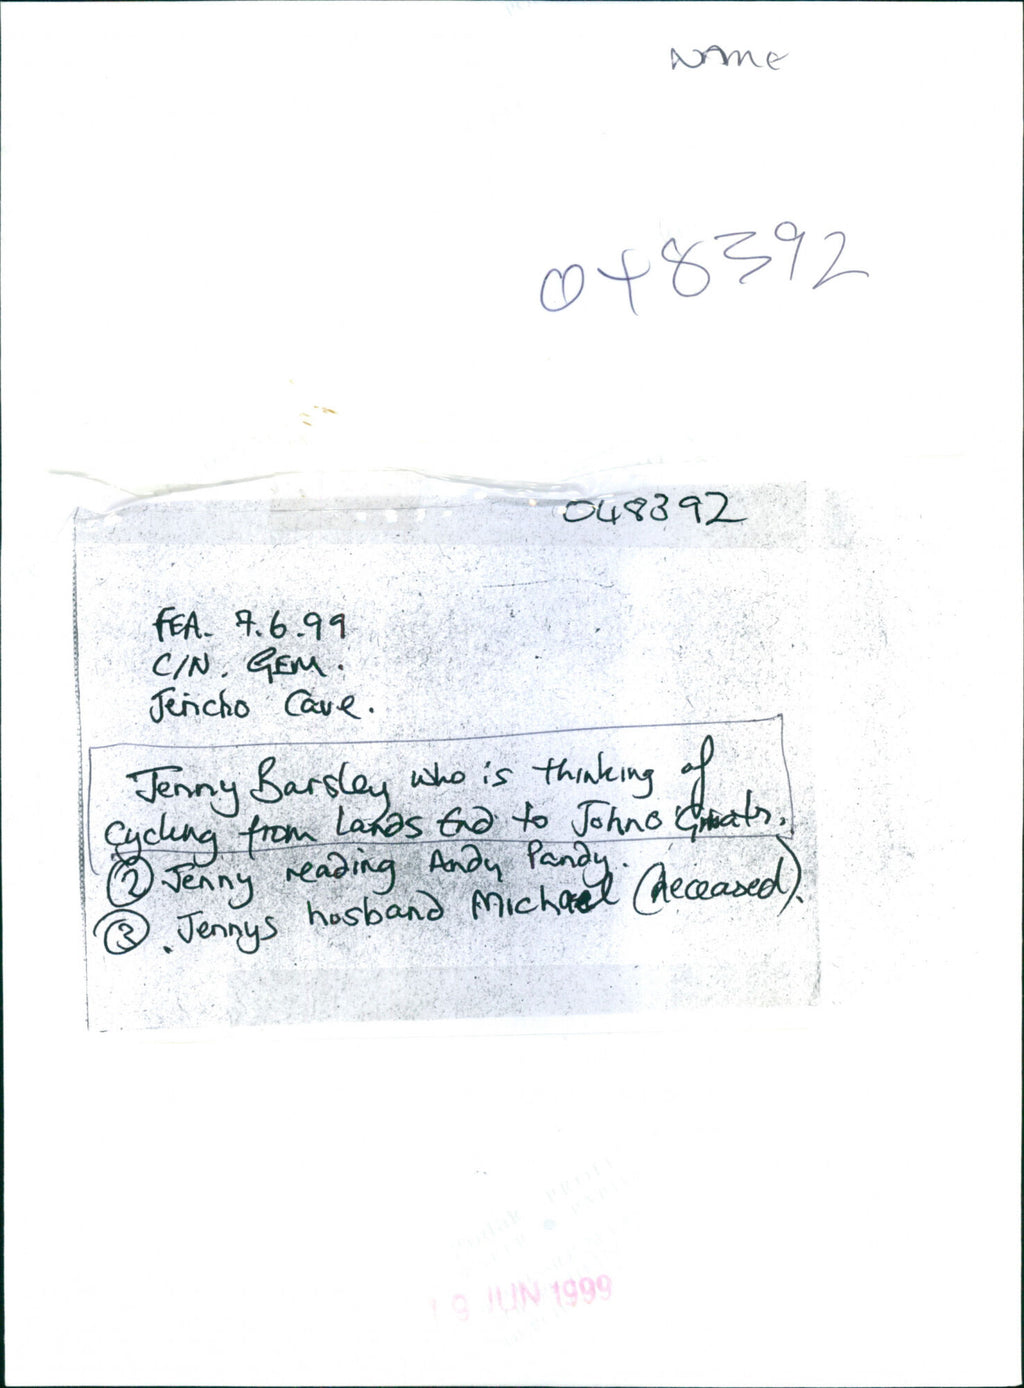 NAME
048392
048392
FEA. 7.6.99
C/N. GEM.
Jericho Cave.
Jenny Barsley who is thinking of
cycling from Lands End to Johno Groats.
② Jenny reading Andy Pandy.
③. Jennys husband Michael (deceased).
19 JUN 1999